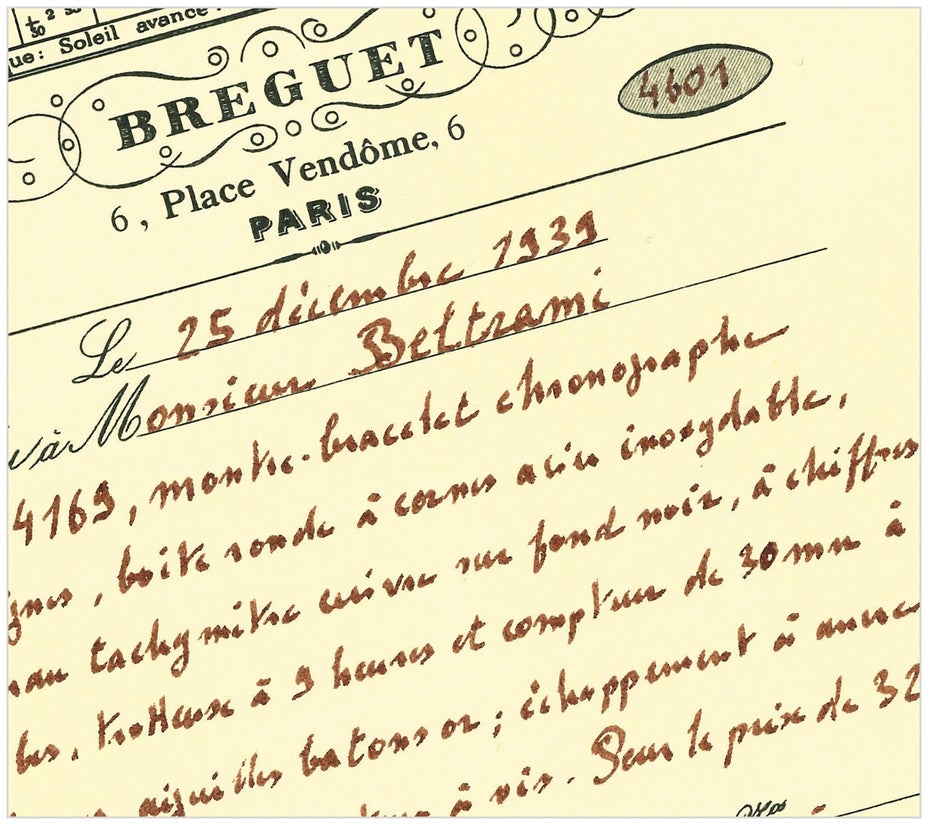 ue: Soleil avance
BREGUET
4601
6, Place Vendôme, 6
PARIS
Le 25 décembre 1939
à Monsieur Beltrami
4169, montre-bracelet chronographe
gnes, boîte ronde à cornes acier inoxydable,
tachymètre cuivre sur fond noir, à chiffres
trotteuse à 9 heures et compteur de 30 mn à
aiguilles batons or; échappement à ancre
à vis. Pour le prix de 32